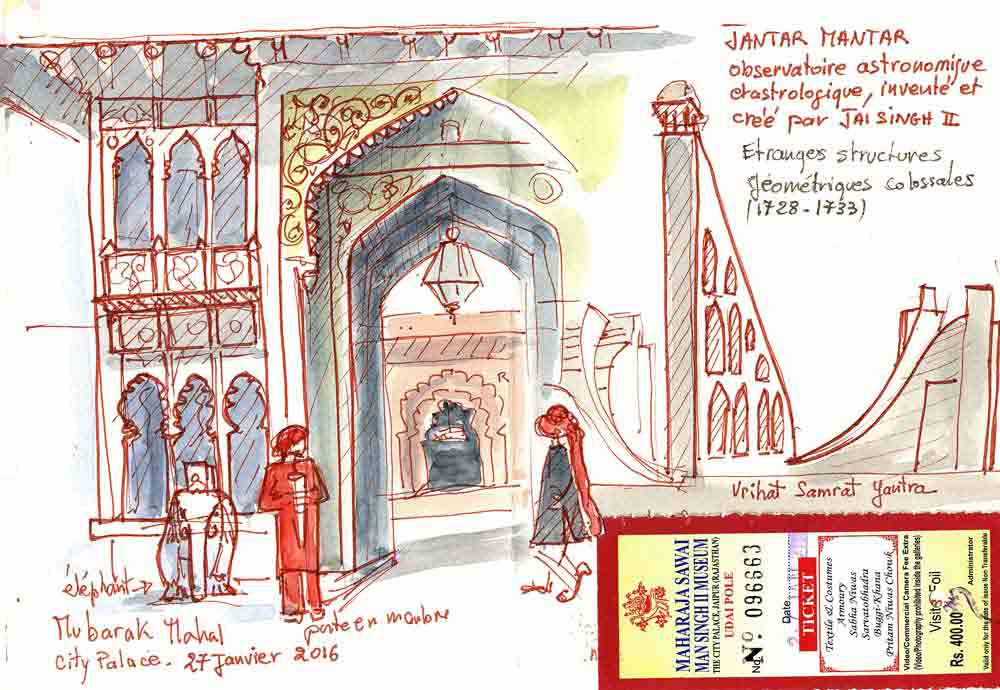 JANTAR MANTAR
observatoire astronomique
et astrologique, inventé et
créé par JAI SINGH II
Etranges structures
géométriques colossales
(1728-1733)
R
Vrihat Samrat Yantra
éléphant →
porte en marbre
Mubarak Mahal
City Palace. 27 Janvier 2016
MAHARAJA SAWAI
MAN SINGH II MUSEUM
THE CITY PALACE, JAIPUR (RAJASTHAN)
UDAI POLE
No. Nº 096663
Date
TICKET
Textile & Costumes
Armoury
Sabha Niwas
Sarvatobhadra
Buggi-Khana
Pritam Niwas Chowk
Video/Commercial Camera Fee Extra
(Video/Photography prohibited inside the galleries)
Visitor Foil
Rs. 400.00
Administrator
Valid only for the date of issue Non Transferable